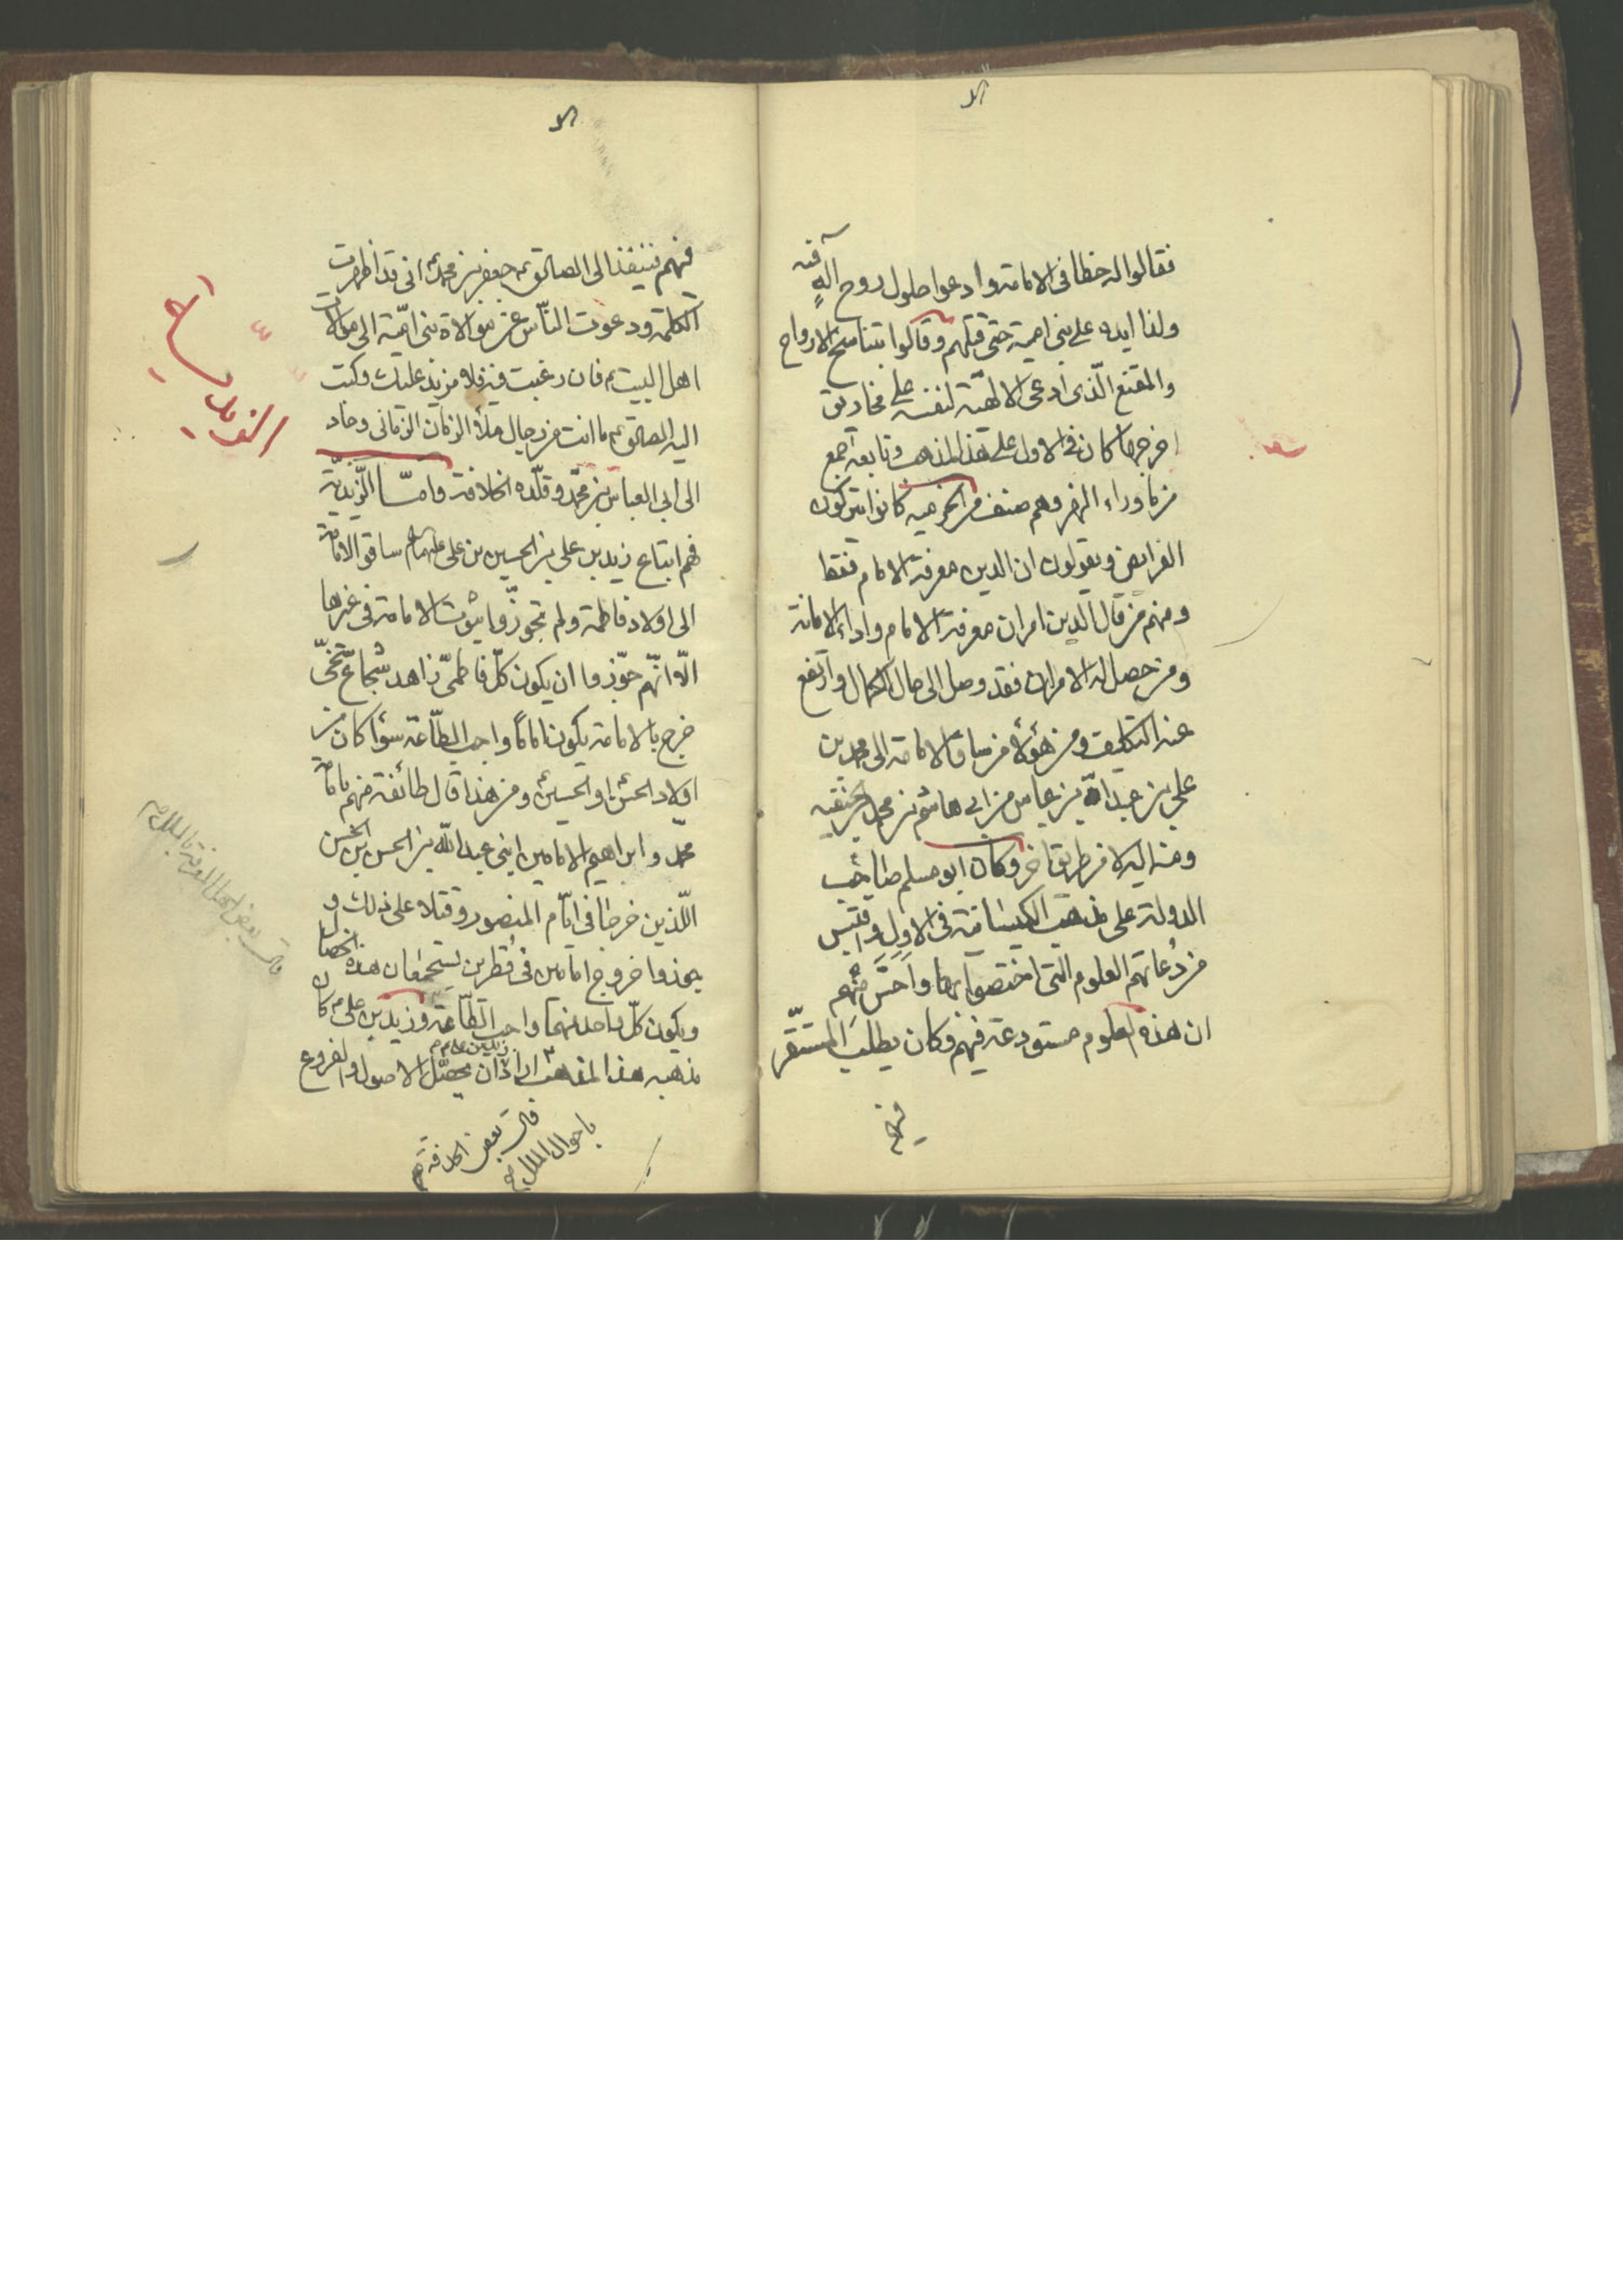 فقالوا له حظا فى الامامة وادعوا حلول روح آله فيه
ولذا ايده على بنى امية حتى قتلهم وقالوا بتناسخ الارواح
والمقنع الّذى ادعى الالهيّة لنفسه على مخاريق
اخرجها كان فى الاول على هذا المذهب وتابعه اجمع
من ماوراء النهر وهم صنف من الخرميه كانوا يتركون
الفرايض ويقولون ان الدين معرفة الامام فقط
ومنهم من قال الدين امران معرفة الامام واداء الامانة
ومن حصل له الامران فقد وصل الى حال الكمال وارتفع
عنه التكليف ومن هؤلاء من ساق الامامة الى محمد بن
على بن عبد الله بن عباس من ابى هاشم بن محمد الحنفيه
وصيه اليه لا من طريق اخر وكان ابو مسلم صاحب
الدولة على مذهب الكيسانية فى الاول واقتبس
من دُعاتهم العلوم التى اختصوا بها واحَسَّ منهم
ان هذه العلوم مستودعة فيهم وكان يطلب المستقر
فيهم
فيهم فينفذ الى الصادق جعفر بن محمد انى قد اظهرت
الكلمة ودعوت النّاس عن موالاة بنى اميّة الى موالات
اهل البيت فان رغبت فيه فلا مزيد عليك وكتب
اليه الصادق ما انت من رجال ولا الزمان الزمانى وحاد
الى ابى العباس بن محمّد وقلّده الخلافة وامّا الزّيديّة
فهم اتباع زيد بن على بن الحسين بن على عليهم السلام ساقو الامامة
الى اولاد فاطمة ولم يجوزّوا ثبوت الامامة فى غيرها
الّا انّهم جوّزوا ان يكون كلّ فاطمىّ زاهد شجاع سّخىّ
خرج بالامامة يكون امامًا واجب الطّاعة سواء كان من
اولاد الحسن او الحسين ومن هذا قال طائفة منهم بامامة
محمّد وابراهيم الامامين ابنى عبدالله بن الحسن بن الحسن
اللّذين خرجا فى ايّام المنصور وقتلا على ذلك و
يجوزوا خروج امامين فى قُطرين يستجمعان هذه الخصال
ويكون كلّ واحد منهما واجب الطّاعة وزيد بن على كان
مذهبه هذا المذهب اراد ان يحصّل الاصول والفروع
زيد بن على
قالت بعض
باحوال الملل